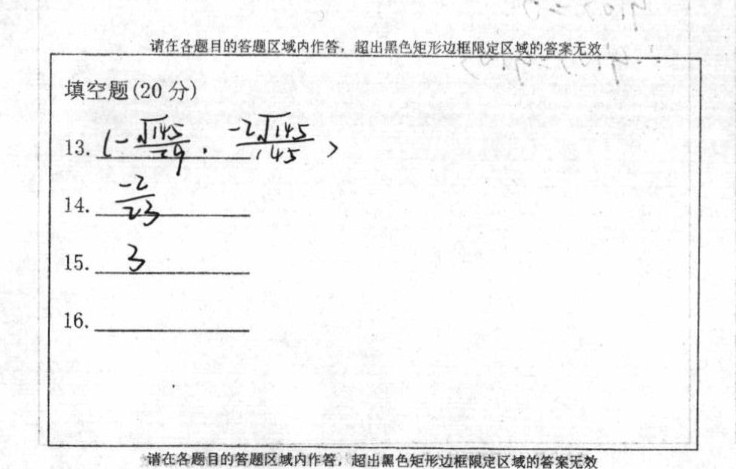 请在各题目的答题区域内作答，超出黑色矩形边框限定区域的答案无效
填空题(20分)
13. (-√145/29, -2√145/145)
14. -2/23
15. 3
16.
请在各题目的答题区域内作答，超出黑色矩形边框限定区域的答案无效